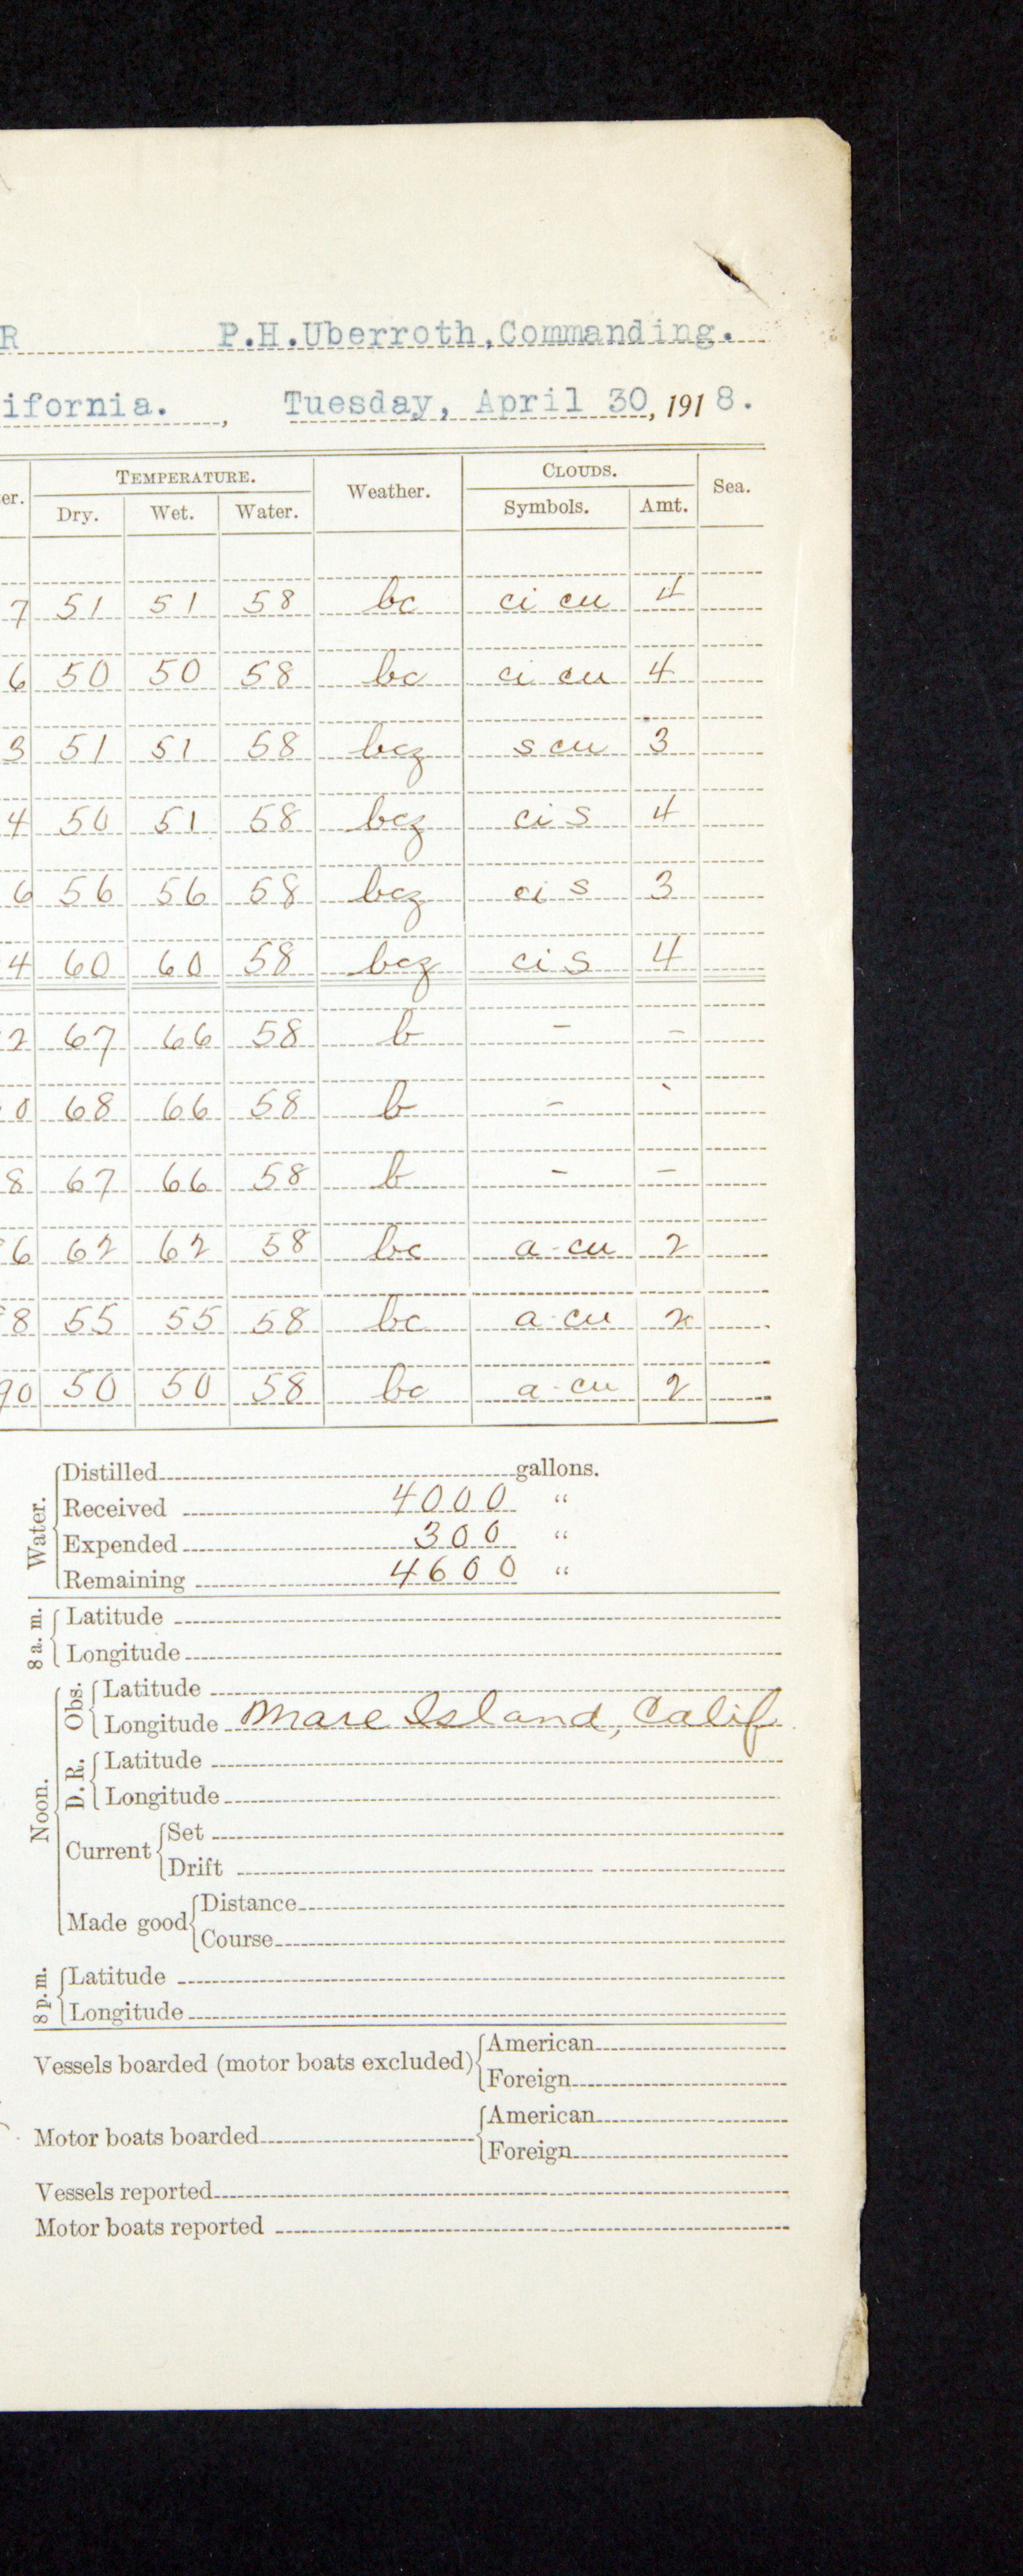 R P.H.Uberroth,Commanding.
ifornia. , Tuesday, April 30, 1918.
er. TEMPERATURE. Weather. CLOUDS. Sea.
Dry. Wet. Water. Symbols. Amt.
7 51 51 58 bc ci cu 4
6 50 50 58 bc ci cu 4
3 51 51 58 bcz s cu 3
4 50 51 58 bcz ci s 4
6 56 56 58 bcz ci s 3
4 60 60 58 bcz ci s 4
2 67 66 58 b - -
0 68 66 58 b - -
8 67 66 58 b - -
6 62 62 58 bc a-cu 2
8 55 55 58 bc a-cu 2
90 50 50 58 bc a-cu 2
Water.
Distilled gallons.
Received 4000 "
Expended 300 "
Remaining 4600 "
8 a. m.
Latitude
Longitude
Noon.
Obs.
Latitude
Longitude Mare Island, Calif
D. R.
Latitude
Longitude
Current
Set
Drift
Made good
Distance
Course
8 p. m.
Latitude
Longitude
Vessels boarded (motor boats excluded)
American
Foreign
Motor boats boarded
American
Foreign
Vessels reported
Motor boats reported